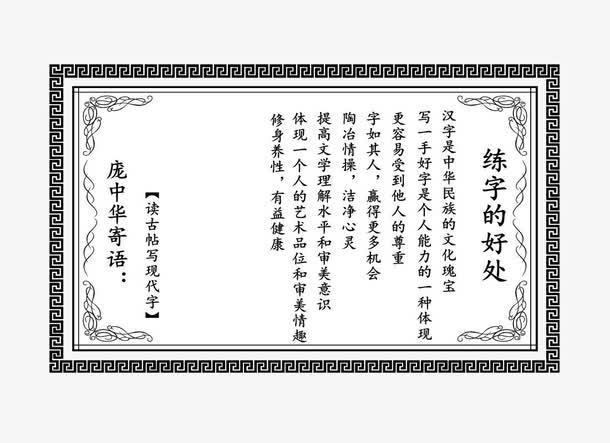 练字的好处
汉字是中华民族的文化瑰宝
写一手好字是个人能力的一种体现
更容易受到他人的尊重
字如其人，赢得更多机会
陶冶情操，洁净心灵
提高文学理解水平和审美意识
体现一个人的艺术品位和审美情趣
修身养性，有益健康
【读古帖写现代字】
庞中华寄语：